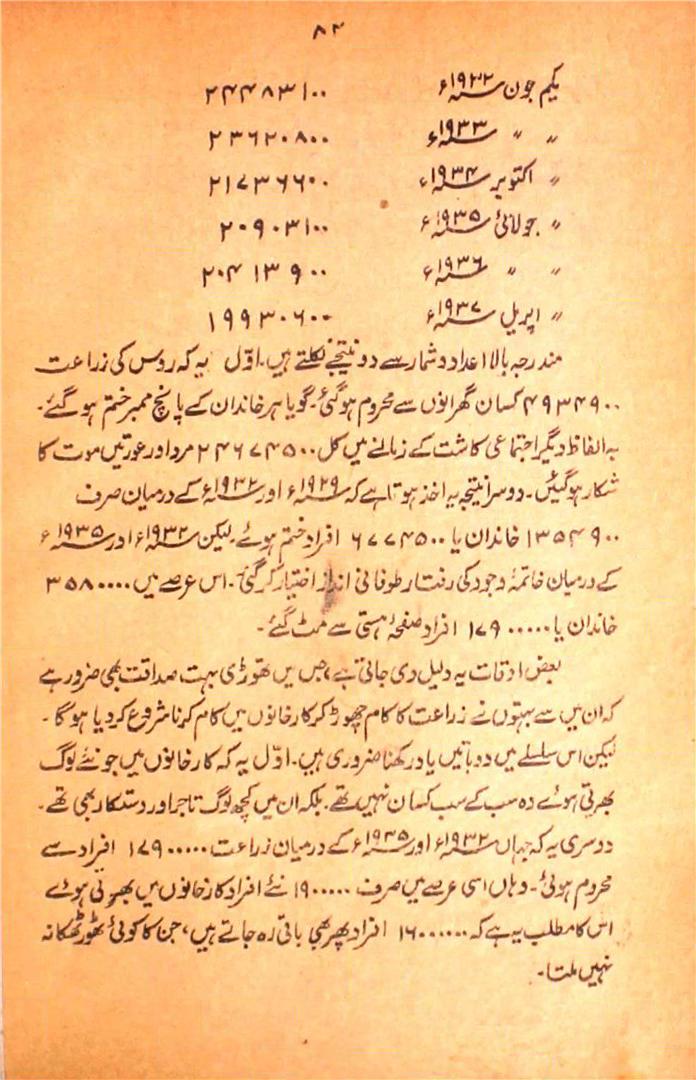 ۸۴
یکم جون ۱۹۳۲ء ۲۴۴۸۳۱۰۰
〃 〃 ۱۹۳۳ء ۲۳۶۲۰۸۰۰
〃 اکتوبر ۱۹۳۴ء ۲۱۷۳۶۶۰۰
〃 جولائی ۱۹۳۵ء ۲۰۹۰۳۱۰۰
〃 〃 ۱۹۳۶ء ۲۰۴۱۳۹۰۰
〃 اپریل ۱۹۳۷ء ۱۹۹۳۰۶۰۰
مندرجہ بالا اعداد و شمار سے دو نتیجے نکلتے ہیں۔ اوّل یہ کہ روس کی زراعت
۴۹۳۴۹۰۰ کسان گھرانوں سے محروم ہو گئی۔ گویا ہر خاندان کے پانچ ممبر ختم ہو گئے۔
بہ الفاظ دیگر اجتماعی کاشت کے زمانے میں کل ۲۴۶۷۴۵۰۰ مرد اور عورتیں موت کا
شکار ہو گئیں۔ دوسرا نتیجہ یہ اخذ ہوتا ہے کہ ۱۹۲۹ء اور ۱۹۳۲ء کے درمیان صرف
۱۳۵۴۹۰۰ خاندان یا ۶۷۷۴۵۰۰ افراد ختم ہوئے۔ لیکن ۱۹۳۲ء اور ۱۹۳۵ء
کے درمیان خاتمۂ وجود کی رفتار طوفانی انداز اختیار کر گئی۔ اس عرصے میں ۳۵۸۰۰۰۰
خاندان یا ۱۷۹۰۰۰۰۰ افراد صفحۂ ہستی سے مٹ گئے۔
بعض اوقات یہ دلیل دی جاتی ہے، جس میں تھوڑی بہت صداقت بھی ضرور ہے
کہ ان میں سے بہتوں نے زراعت کا کام چھوڑ کر کارخانوں میں کام کرنا شروع کر دیا ہو گا۔
لیکن اس سلسلے میں دو باتیں یاد رکھنا ضروری ہیں۔ اوّل یہ کہ کارخانوں میں جو نئے لوگ
بھرتی ہوئے وہ سب کے سب کسان نہیں تھے۔ بلکہ ان میں کچھ لوگ تاجر اور دستکار بھی تھے۔
دوسری یہ کہ جہاں ۱۹۳۲ء اور ۱۹۳۵ء کے درمیان زراعت ۱۷۹۰۰۰۰۰ افراد سے
محروم ہوئی۔ وہاں اسی عرصے میں صرف ۱۹۰۰۰۰۰ نئے افراد کارخانوں میں بھرتی ہوئے
اس کا مطلب یہ ہے کہ ۱۶۰۰۰۰۰۰ افراد پھر بھی باقی رہ جاتے ہیں، جن کا کوئی ٹھور ٹھکانہ
نہیں ملتا۔